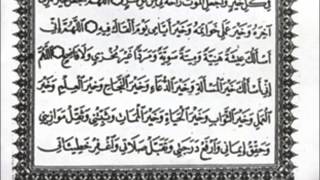 في كل خير واجعل الموت راحة لي من كل شر
آخِرَهُ وَخَيْرَ عَمَلِي خَوَاتِمَهُ وَخَيْرَ أَيَّامِي يَوْمَ أَلْقَاكَ فِيهِ اَللّٰهُمَّ اِنِّي
أَسْأَلُكَ عِيشَةً هَنِيَّةً وَمِيتَةً سَوِيَّةً وَمَرَدًّا غَيْرَ مُخْزِي وَلَا فَاضِحٍ اَللّٰهُمَّ
إِنِّي أَسْأَلُكَ خَيْرَ الْمَسْأَلَةِ وَخَيْرَ الدُّعَاءِ وَخَيْرَ النَّجَاحِ وَخَيْرَ الْعِلْمِ وَخَيْرَ
الْعَمَلِ وَخَيْرَ الثَّوَابِ وَخَيْرَ الْحَيَاةِ وَخَيْرَ الْمَمَاتِ وَثَبِّتْنِي وَثَقِّلْ مَوَازِينِي
وَحَقِّقْ إِيمَانِي وَارْفَعْ دَرَجَتِي وَتَقَبَّلْ صَلَاتِي وَاغْفِرْ خَطِيئَاتِي